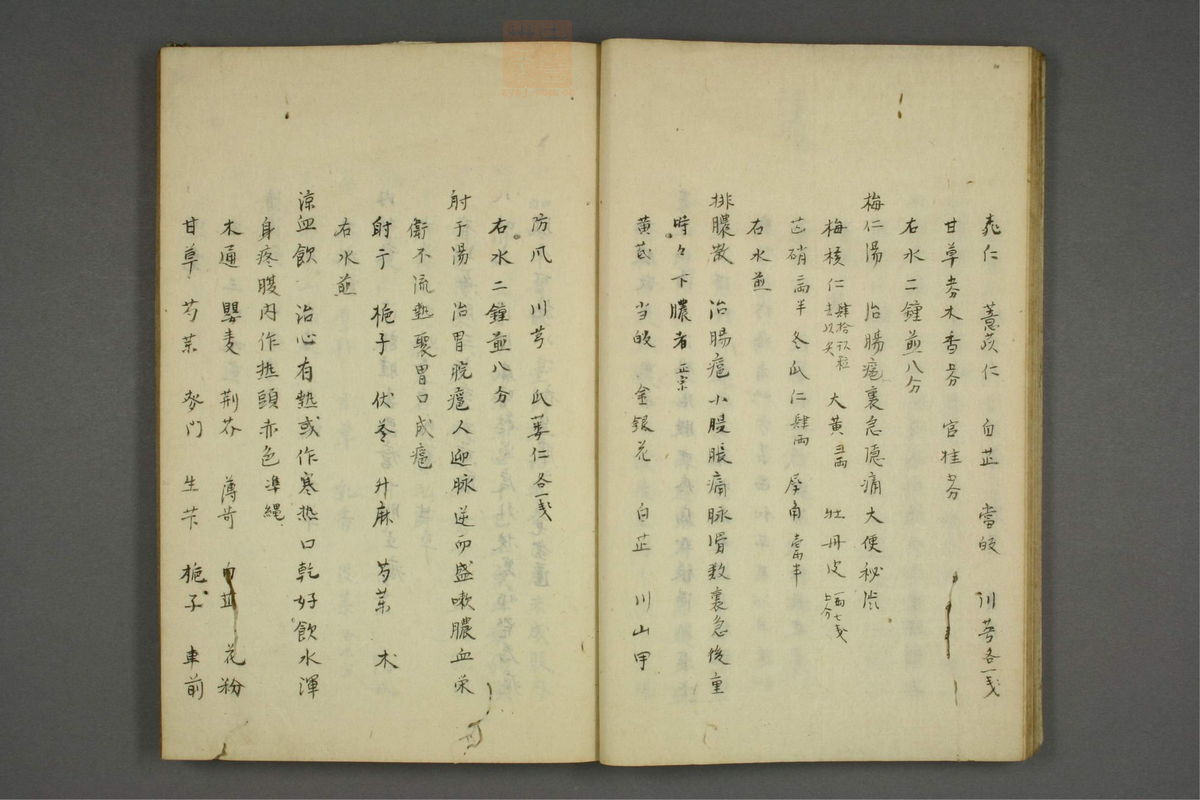 桃仁 薏苡仁 白芷 當皈 川芎各一戔
甘草五分木香五分 官桂五分
右水二鐘煎八分
梅仁湯 治腸癰裏急隱痛大便秘
梅核仁 大黄三両 牡丹皮一両七戔
芒硝二両半 冬瓜仁肆両 犀角壹両半
右水煎
排膿散 治腸癰小腹脹痛脉滑数裏急後重
時々下膿者正宗
黄芪 当皈 金銀花 白芷 川山甲
防风 川芎 瓜蔞仁各一戔
右水二鐘煎八分
射干湯 治胃脘癰人迎脉逆而盛嗽膿血栄
衛不流熱聚胃口成癰
射干 梔子 伏苓 升麻 芍薬 朮
右水煎
凉血飲 治心有熱或作寒热口乾好飲水渾
身疼腹内作热頭赤色準縄
木通 瞿麦 荆芥 薄苛 白芷 花粉
甘草 芍薬 麥門 生苄 梔子 車前